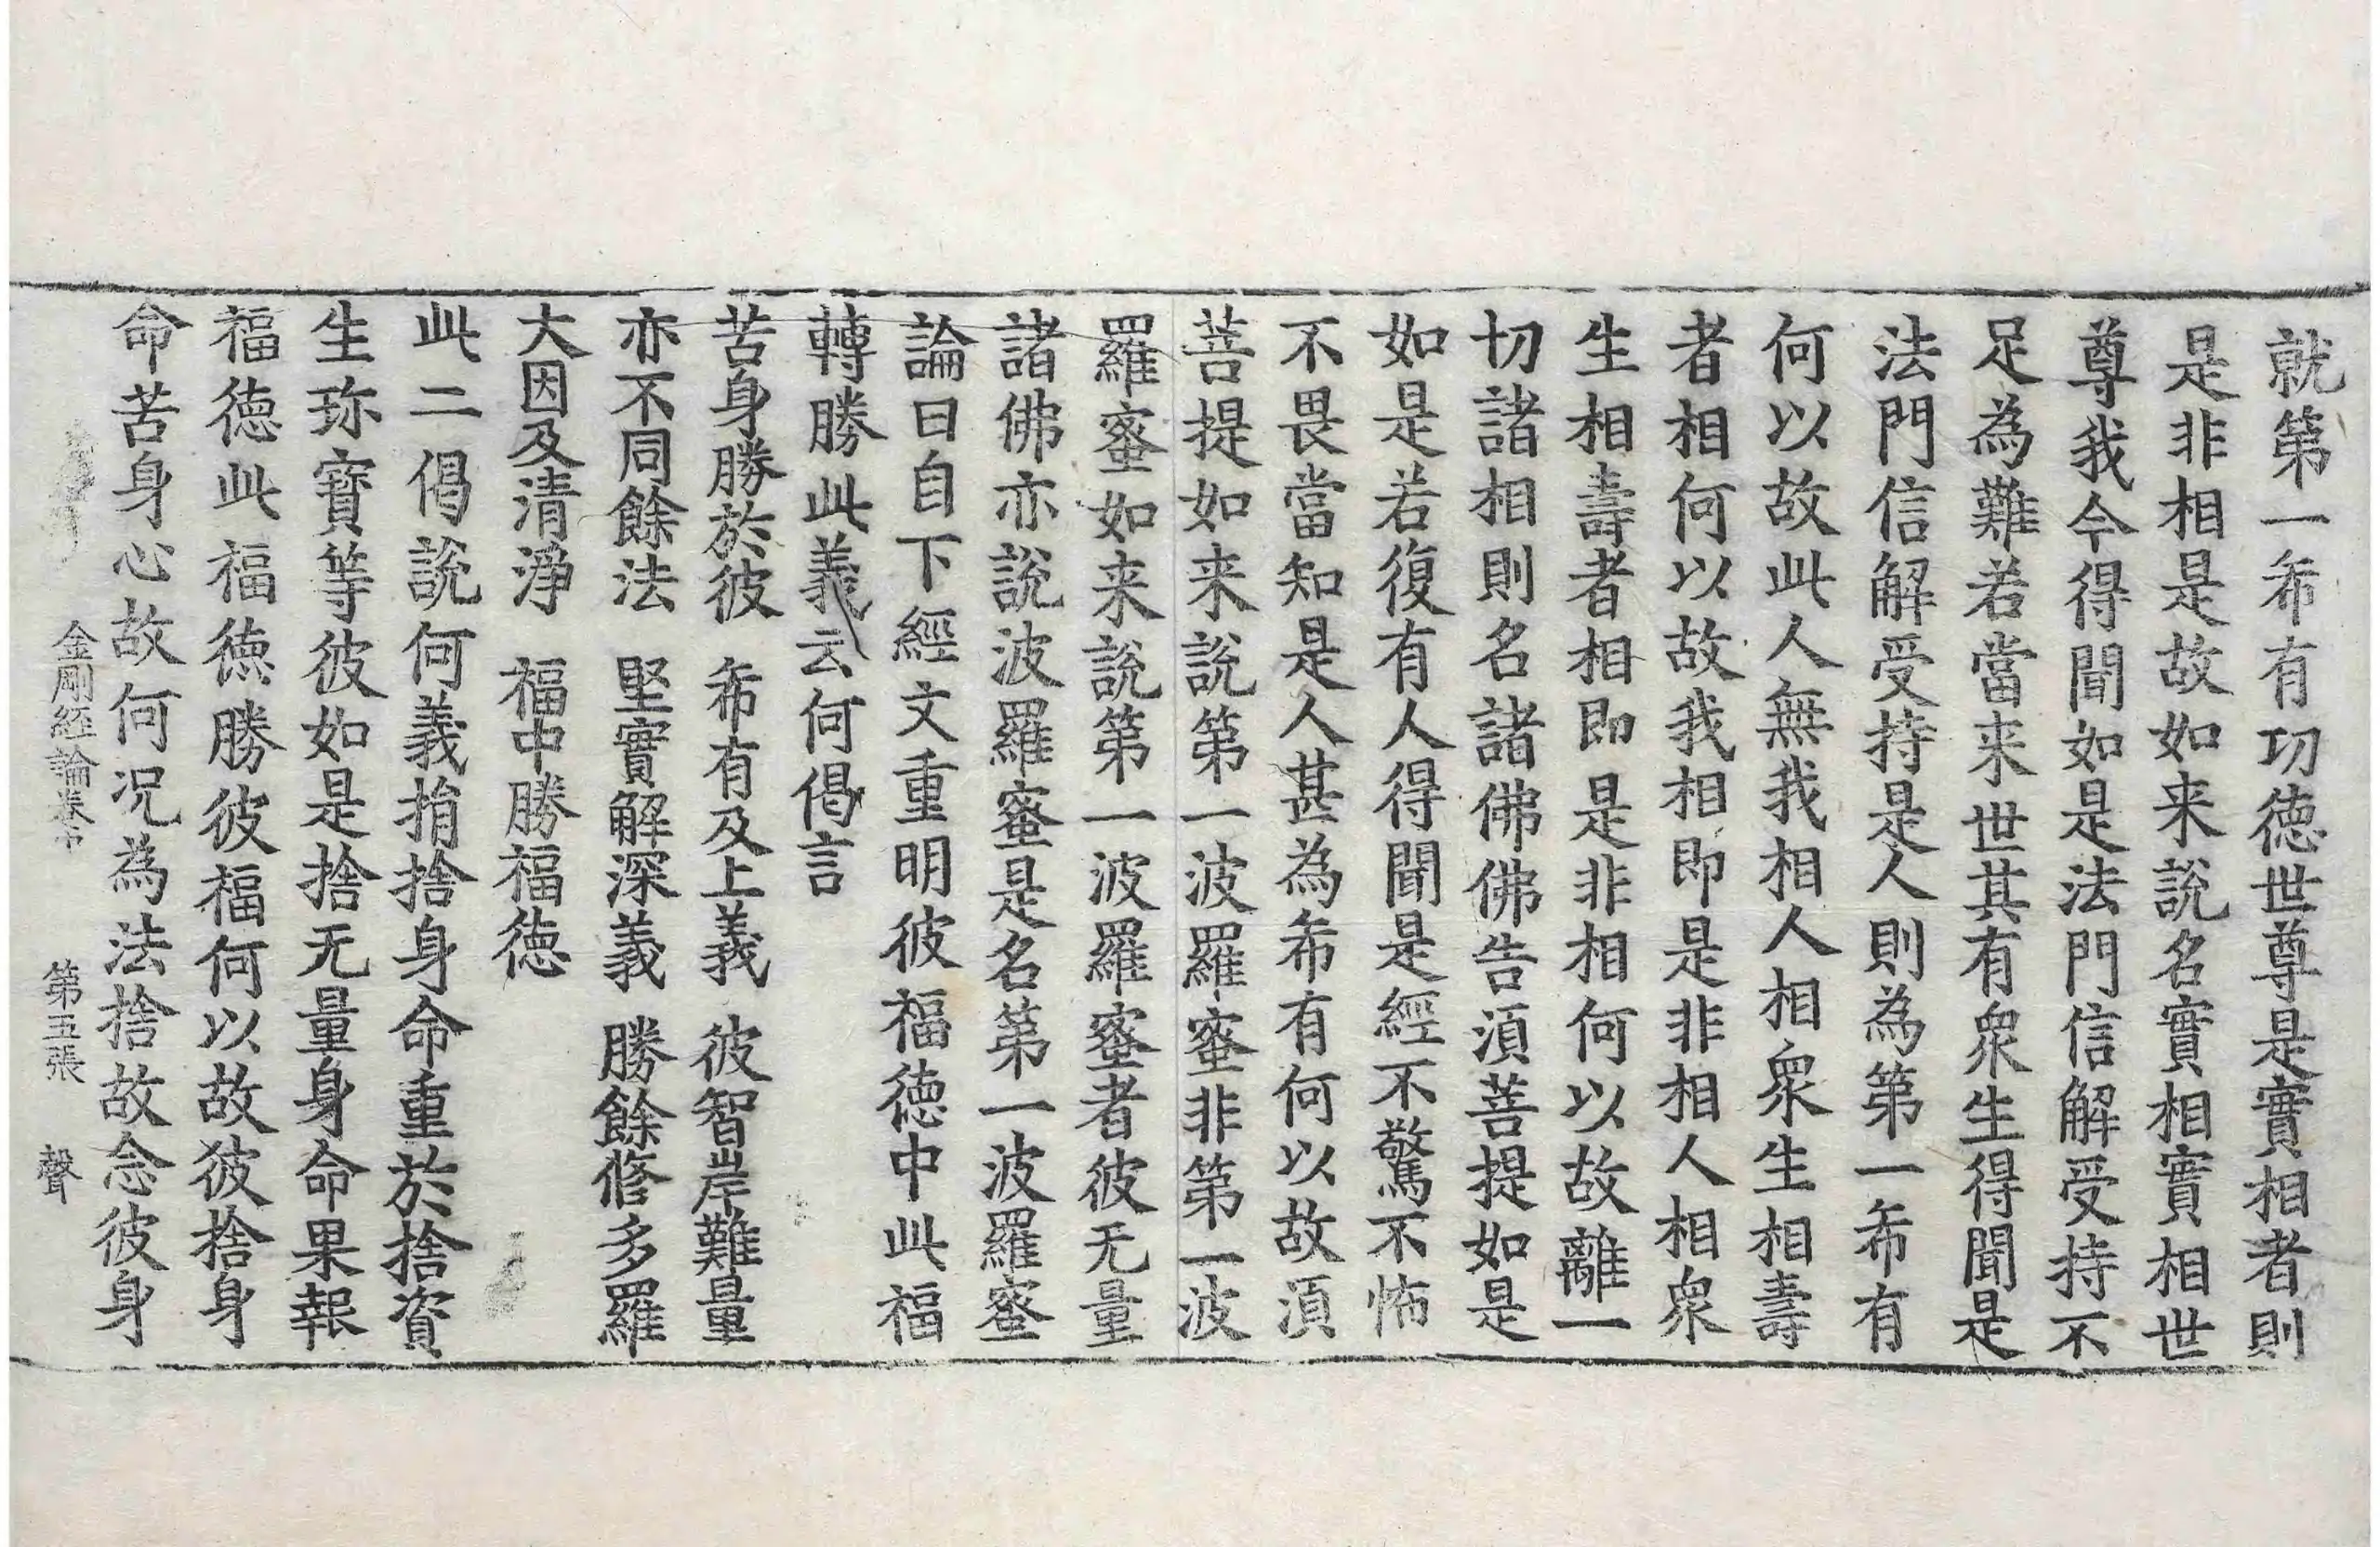 就第一希有功徳世尊是實相者則
是非相是故如来說名實相實相世
尊我今得聞如是法門信解受持不
足為難若當来世其有衆生得聞是
法門信解受持是人則為第一希有
何以故此人無我相人相衆生相壽
者相何以故我相即是非相人相衆
生相壽者相即是非相何以故離一
切諸相則名諸佛佛告湏菩提如是
如是若復有人得聞是經不驚不怖
不畏當知是人甚為希有何以故湏
菩提如来說第一波羅蜜非第一波
羅蜜如来說第一波羅蜜者彼无量
諸佛亦說波羅蜜是名第一波羅蜜
論曰自下經文重明彼福徳中此福
轉勝此義云何偈言
苦身勝於彼　希有及上義　彼智岸難量
亦不同餘法　堅實解深義　勝餘修多羅
大因及清淨　福中勝福徳
此二偈說何義捨捨身命重於捨資
生珎寶等彼如是捨无量身命果報
福徳此福徳勝彼福何以故彼捨身
命苦身心故何况為法捨故念彼身
金剛經論卷中　第五張　聲